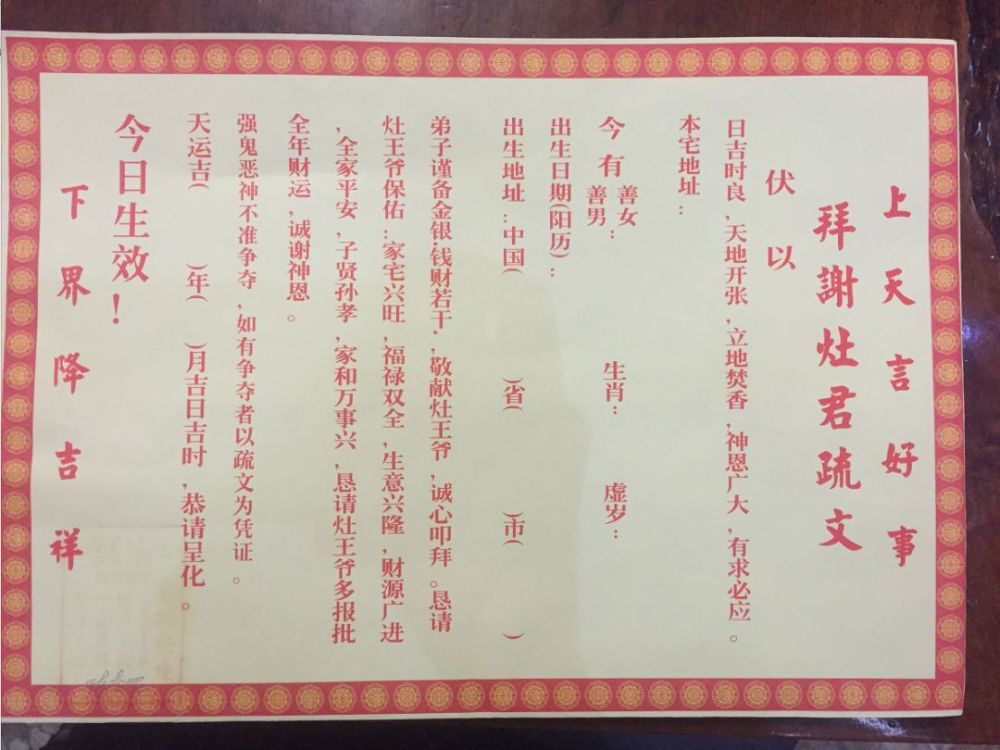 上天言好事
拜謝灶君疏文
伏以
日吉时良,天地开张,立地焚香,神恩广大,有求必应。
本宅地址:
今有善女善男: 生肖: 虚岁:
出生日期(阳历):
出生地址:中国( )省( )市( )
弟子谨备金银.钱财若干.,敬献灶王爷,诚心叩拜。恳请
灶王爷保佑:家宅兴旺,福禄双全,生意兴隆,财源广进
,全家平安,子贤孙孝,家和万事兴,恳请灶王爷多报批
全年财运,诚谢神恩。
强鬼恶神不准争夺,如有争夺者以疏文为凭证。
天运吉( )年( )月吉日吉时,恭请呈化。
今日生效!
下界降吉祥